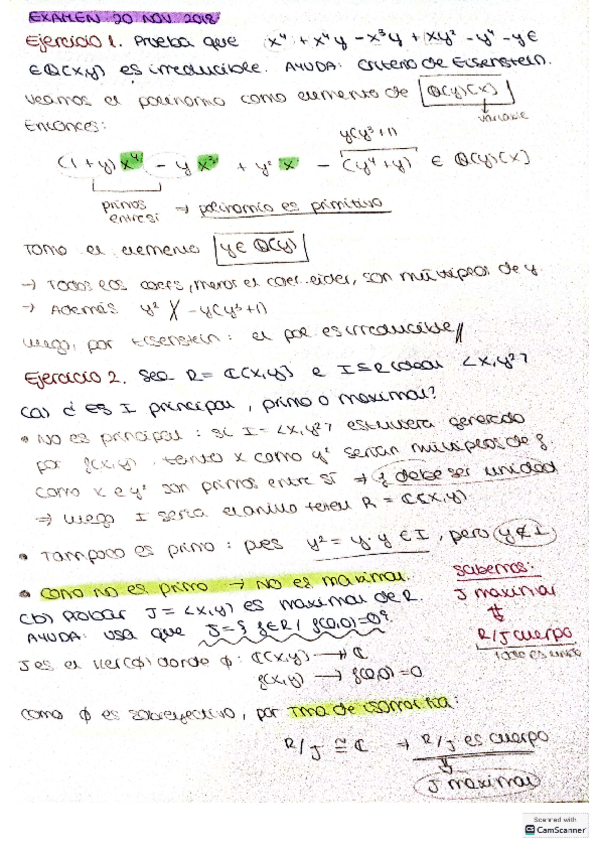 EXAMEN 20 NOV 2018
Ejercicio 1. Prueba que x⁴ + x⁴y - x³y + xy² - y⁴ - y ∈
∈ Q[x,y] es irreducible. AYUDA: Criterio de Eisenstein.
veamos el polinomio como elemento de Q[y][x]
variable
Entonces:
y(y³+1)
(1+y)x⁴ - yx³ + y²x - (y⁴+y) ∈ Q[y][x]
primos
entre sí → polinomio es primitivo
Tomo el elemento y ∈ Q[y]
→ Todos los coefs, menos el coef. lider, son múltiplos de y.
→ Además y² ∤ -y(y³+1)
Luego, por Eisenstein: el pol es irreducible //
Ejercicio 2. Sea R = C[x,y] e I ⊆ R ideal <x,y²>
(a) ¿Es I principal, primo o maximal?
• No es principal: si I = <x,y²> estuviera generado
por f(x,y), tanto x como y² serían múltiplos de f.
como x e y² son primos entre sí ⇒ f debe ser unidad
⇒ luego I sería el anillo R = C[x,y]
• Tampoco es primo: pues y² = y·y ∈ I, pero y ∉ I
• como no es primo → No es maximal.
Sabemos:
J maximal
⇕
R/J cuerpo
(b) Probar J = <x,y> es maximal de R.
AYUDA: usa que J = { f ∈ R / f(0,0) = 0 }.
J es el Ker(ϕ) donde ϕ: C[x,y] → C
f(x,y) → f(0,0) = 0
como ϕ es sobreyectivo, por Tma de isomorfía:
R/J ≅ C ⇒ R/J es cuerpo
J maximal
Scanned with
CamScanner